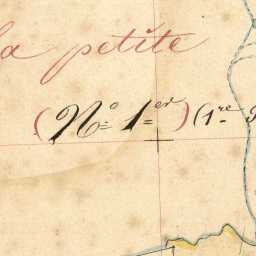 la petite
(N° 1er) (1re